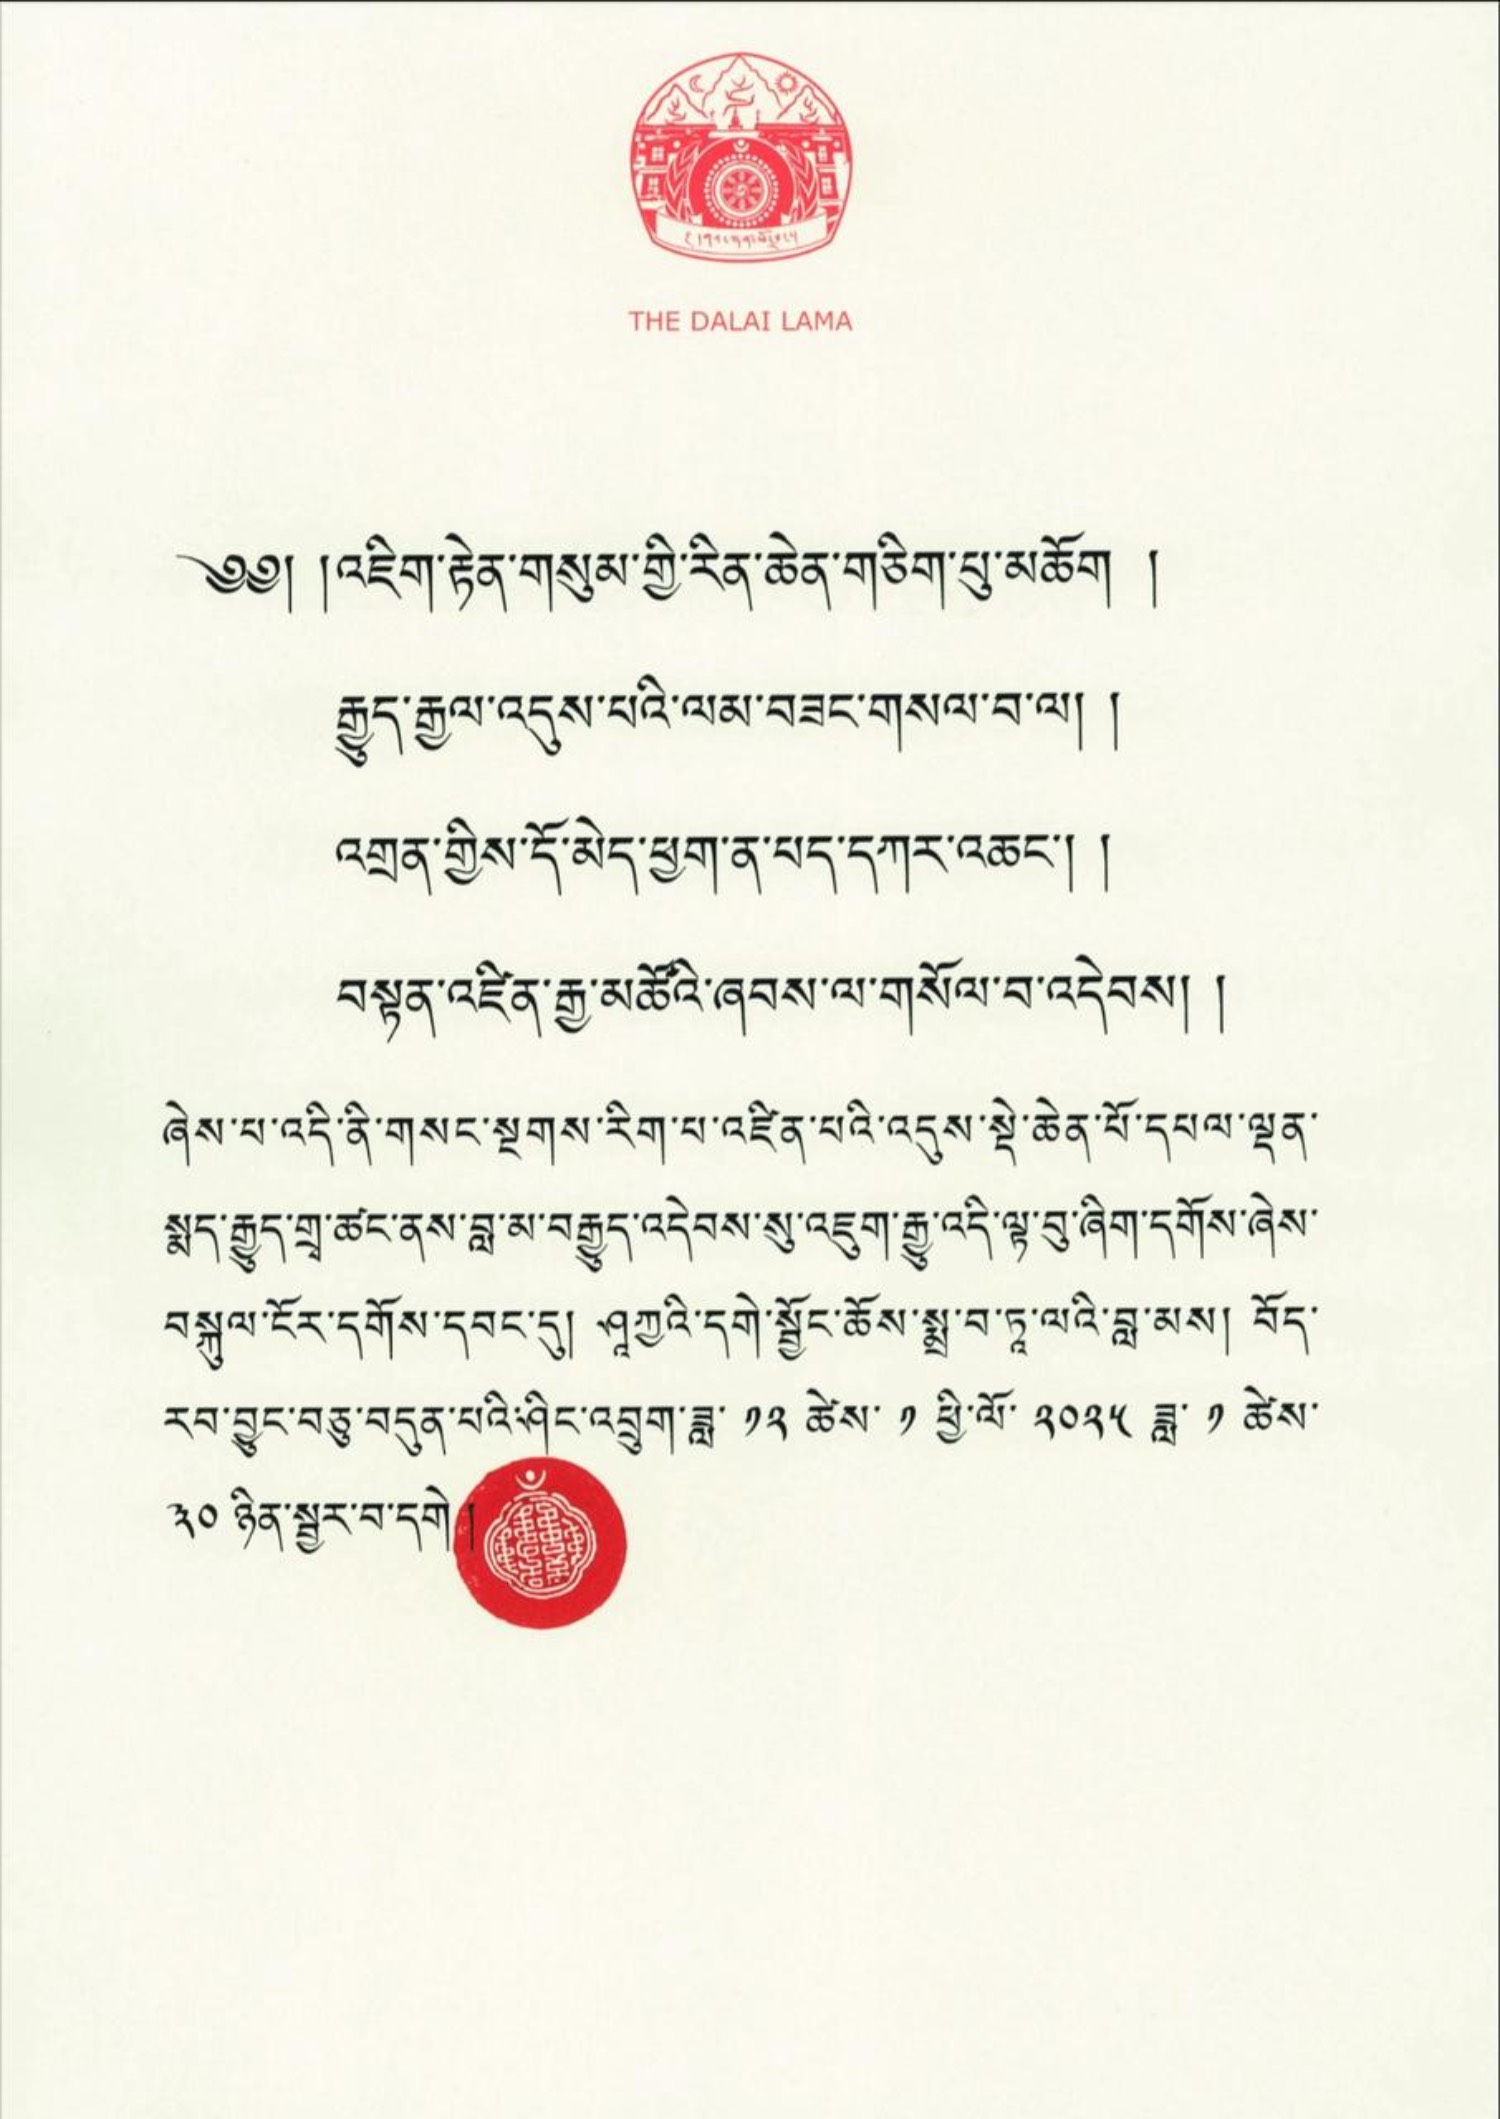 THE DALAI LAMA
༄༅། །འཇིག་རྟེན་གསུམ་གྱི་རིན་ཆེན་གཅིག་པུ་མཆོག །
རྒྱུད་རྒྱལ་འདུས་པའི་ལམ་བཟང་གསལ་བ་ལ། །
འགྲན་གྱིས་དོ་མེད་ཕྱག་ན་པད་དཀར་འཆང་། །
བསྟན་འཛིན་རྒྱ་མཚོའི་ཞབས་ལ་གསོལ་བ་འདེབས། །
ཞེས་པ་འདི་ནི་གསང་སྔགས་རིག་པ་འཛིན་པའི་འདུས་སྡེ་ཆེན་པོ་དཔལ་ལྡན་
སྨད་རྒྱུད་གྲྭ་ཚང་ནས་བླ་མ་བརྒྱུད་འདེབས་སུ་འཇུག་རྒྱུ་འདི་ལྟ་བུ་ཞིག་དགོས་ཞེས་
བསྐུལ་ངོར་དགོས་དབང་དུ། ཤཱཀྱའི་དགེ་སློང་ཆོས་སྨྲ་བ་ཏཱ་ལའི་བླ་མས། བོད་
རབ་བྱུང་བཅུ་བདུན་པའི་ཤིང་འབྲུག་ཟླ་ ༡༢ ཚེས་ ༡ ཕྱི་ལོ་ ༢༠༢༥ ཟླ་ ༡ ཚེས་
༣༠ ཉིན་སྦྱར་བ་དགེ །